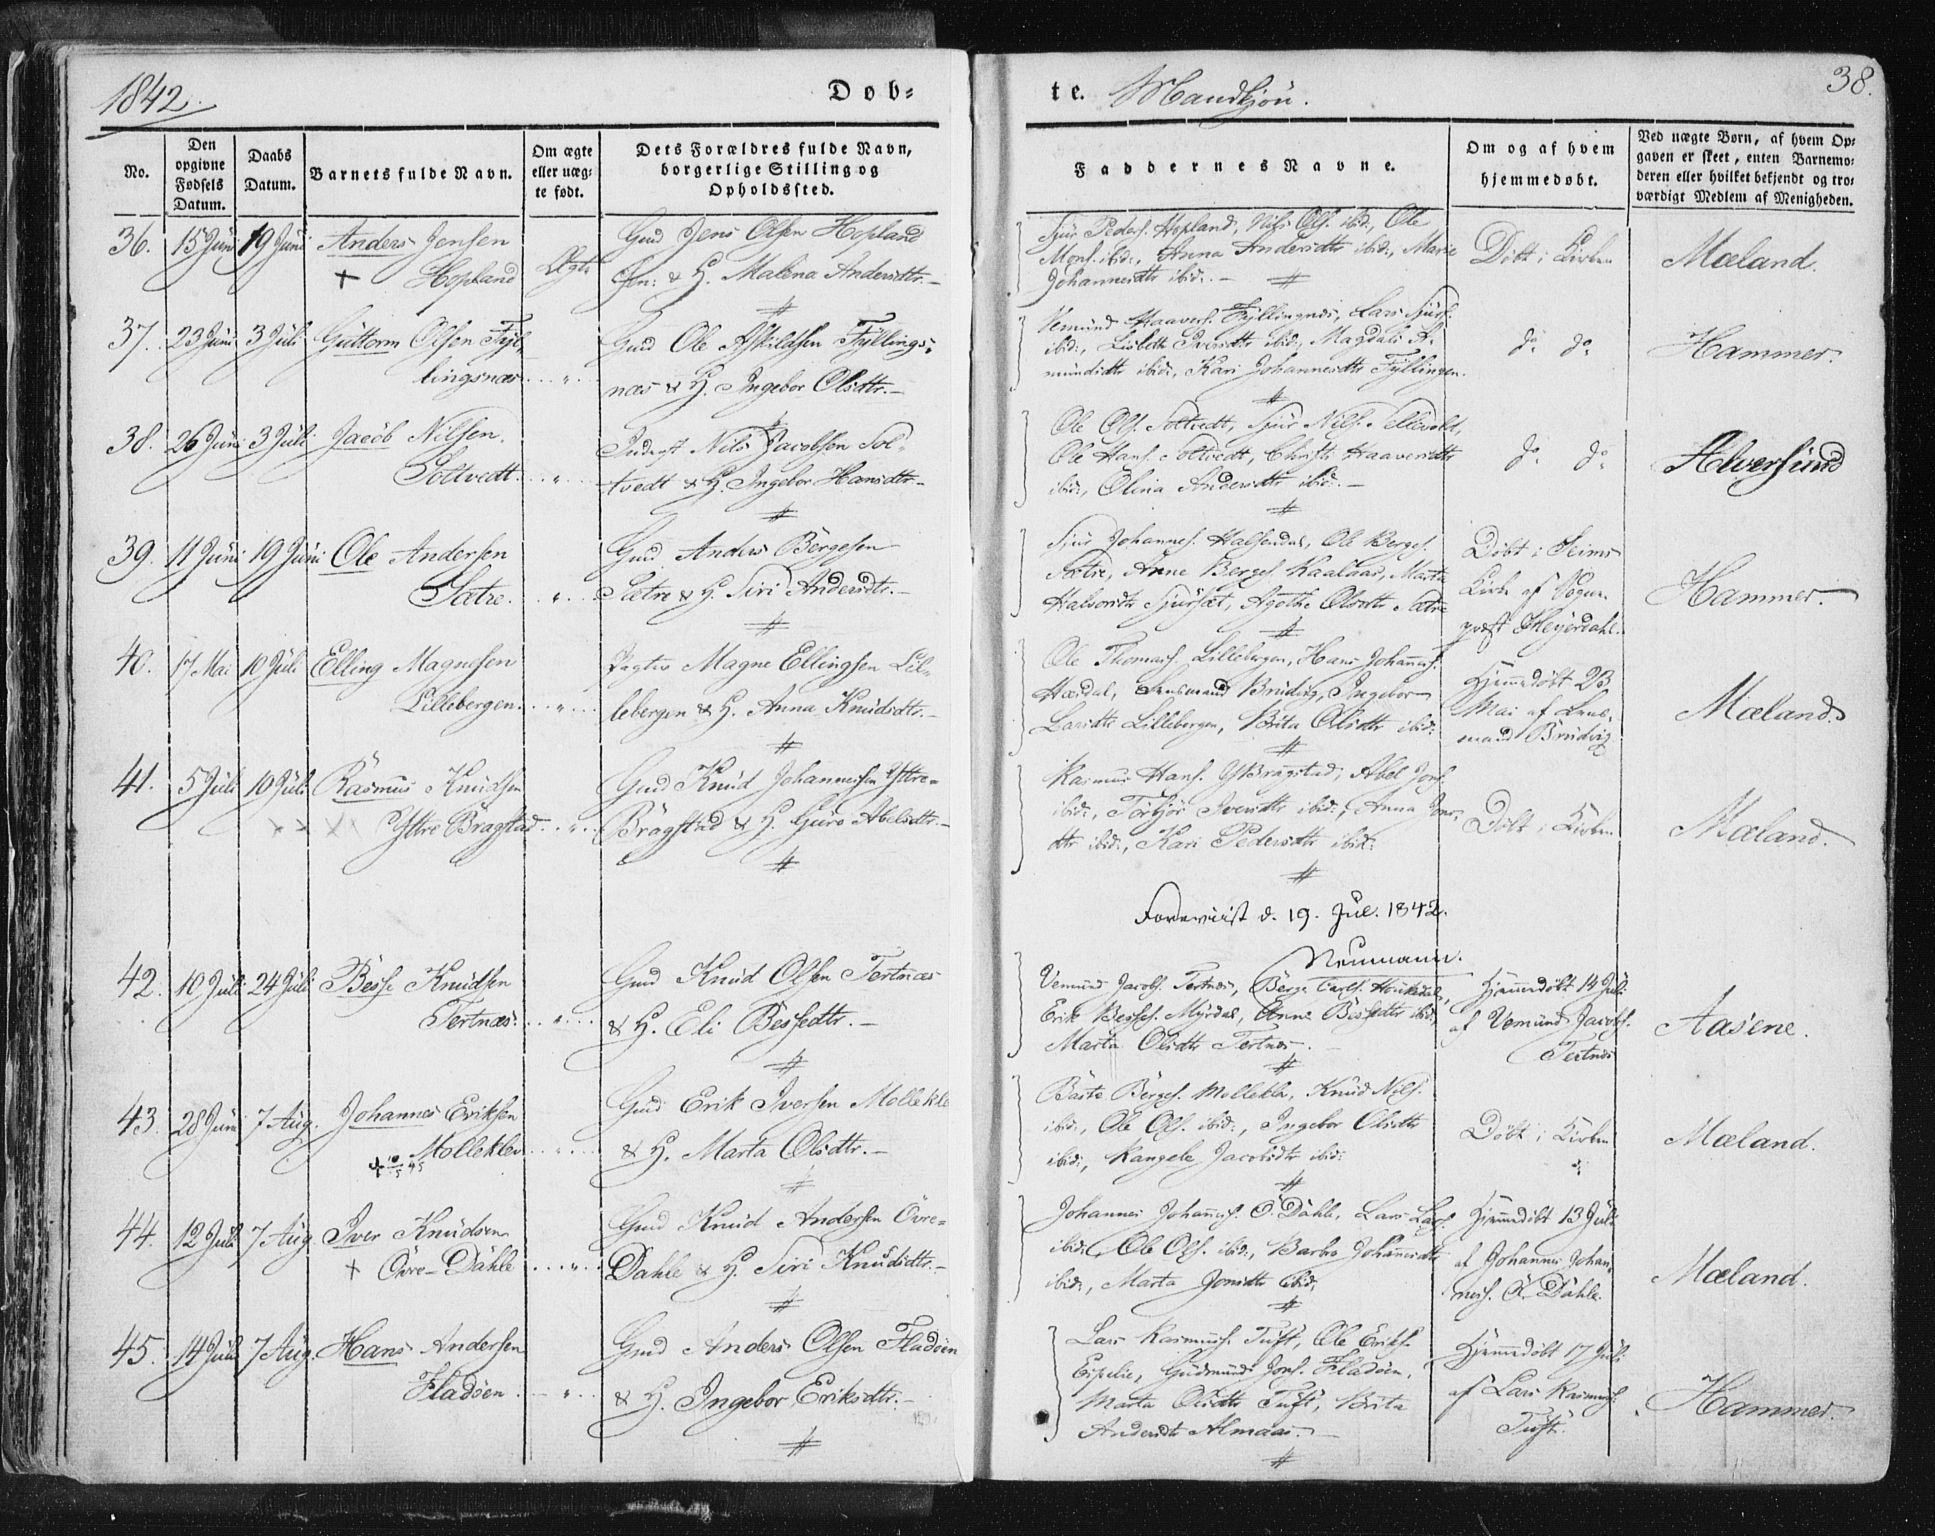 1842.
Døb-
te. Mandkjön.
38.
No.
Den opgivne Fødsels Datum.
Daabs Datum.
Barnets fulde Navn.
Om ægte eller uæg-
te født.
Dets Forældres fulde Navn,
borgerlige Stilling og
Opholdssted.
Faddernes Navne.
Om og af hvem
hjemmedøbt.
Ved uægte Børn, af hvem Op-
gaven er skeet, enten Barnemo-
deren eller hvilket bekjendt og tro-
værdigt Medlem af Menigheden.
36. 15 Juni 19 Juni Anders Jensen
+ Hopland Ægte
Gmd Jens Olsen Hopland
& H. Malena Andersdtr.-
Sjur Peders. Hopland, Nils Ols. ibid:, Ole
Mons. ibid:, Anna Andersdtr ibid:, Marie
Johannesdtr ibid:.-
Döbt i Kirken
Mæland.
37. 23 Juni 3 Juli Guttorm Olsen Fyl-
lingsnæs
Gmd Ole Askildsen Fyllings-
næs & H. Ingebor Olsdtr.-
Vemund Haavers. Fyllingnæs, Lars Sjurs.
ibid:, Lisbeth Iversdtr ibid:, Magdali A-
mundsdtr ibid:, Kari Johannesdtr Fyllingen.
do do
Hammer.
38. 26 Juni 3 Juli Jacob Nilsen
Soltvedt
Inderst Nils Jacobsen Sol-
tvedt & H. Ingebor Hansdtr.-
Ole Ols. Soltvedt, Sjur Nils. Tellevold,
Ole Hans. Soltvedt, Christi Haaversdtr
ibid:, Olina Andersdtr ibid:.-
do do
Alversund
39. 11 Juni 19 Juni Ole Andersen
Sætre.
Gmd Anders Börgesen
Sætre & H. Siri Andersdtr.-
Sjur Johannes. Halsendal, Ole Berges.
Sætre, Anne Berges. Kaalaas, Marta
Halvorsdtr Sjursæt, Agothe Olsdtr Sætre
Döbt i Seims
Kirke af Vogne-
præst Heyerdahl.
Hammer.
40. 17 Mai 10 Juli Elling Magnesen
Lillebergen.
Magne Ellingsen Lil-
lebergen & H. Anna Knudsdtr.-
Ole Thomas. Lillebergen, Hans Johannes.
Hordal, Lensmand Brudvig, Ingebor
Larsdtr Lillebergen, Brita Olsdtr ibid:
Hjemmedöbt 23
Mai af Lens-
mand Brudvig
Mæland.
41. 5 Juli 10 Juli Rasmus Knudsen
Yttre Bragstad
Gmd Knud Johannesen Yttre-
Bragstad & H. Guro Abelsdtr.-
Rasmus Hans. Y Bragstad, Abel Jons.
ibid:, Torbjör Iversdtr ibid:, Anna Jons-
dtr ibid:, Kari Pedersdtr ibid:
Döbt i Kirken
Mæland.
Foreviist d. 19. Jul. 1842.
Neumann.
42. 10 Juli 24 Juli Besse Knudsen
Tertnæs.
Gmd Knud Olsen Tertnæs
& H. Eli Bessedtr.-
Vemund Jacobs. Tertnæs, Börge Carls.
Erik Besses. Myrdal, Anne Bessedtr ibid:,
Marta Olsdtr Tertnæs.-
Hjemmedöbt 14 Juli
af Vemund Jacobs.
Tertnæs
Aasene.
43. 28 Juni 7 Aug. Johannes Eriksen
Molleklev
Gmd Erik Iversen Mollekle
& H. Marta Olsdtr.-
Börges. Molleklev, Knud Nils.
ibid:, Ole Ols. ibid:, Ingebor Olsdtr
ibid:, Rangele Jacobsdtr ibid:
Döbt i Kirken
Mæland.
44. 12 Juli 7 Aug. Iver Knudsen
+ Övre-Dahle
Gmd Knud Andersen Övre-
Dahle & H. Siri Knudsdtr.-
Johannes Johannes. Ö. Dahle, Lars Lars.
ibid:, Ole Ols. ibid:, Barbro Johannesdtr
ibid:, Marta Jonsdtr ibid:
Hjemmedöbt 13 Juli
af Johannes Johan-
nes. Ö. Dahle.
Mæland.
45. 14 Juli 7 Aug. Hans Andersen
Fladöen
Gmd Anders Olsen Fladöen
& H. Ingebor Eriksdtr.-
Lars Rasmus. Tuft, Ole Eriks.
Espelie, Gudmund Jons. Fladöen,
Marta Olsdtr Tuft, Brita
Andersdtr Almaas.-
Hjemmedöbt 17 Juli
af Lars Rasmus.
Tuft.
Hammer.